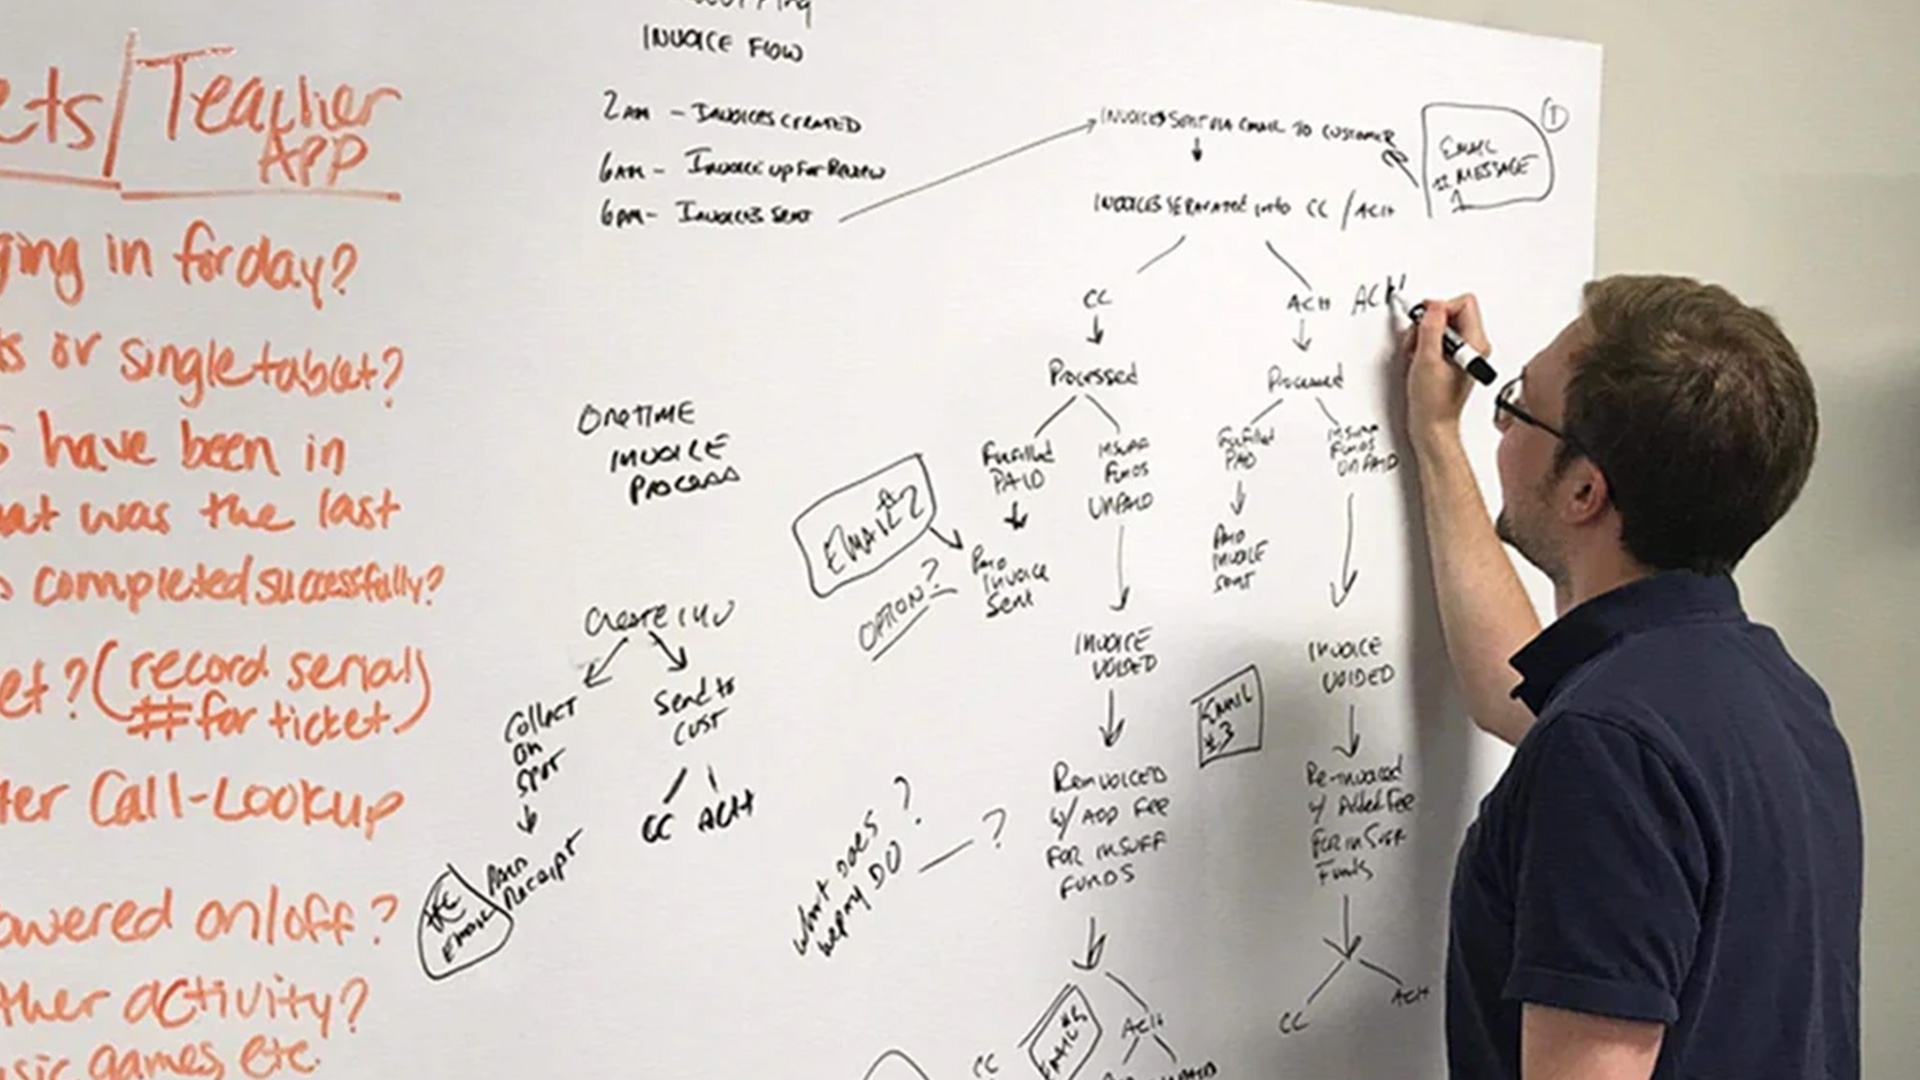 ets/Teacher
APP
ging in for day?
ts or single tablet?
s have been in
hat was the last
s completed successfully?
et? (record serial
# for ticket)
ter Call-Lookup
owered on/off?
ther activity?
sic, games, etc.
INVOICE FLOW
2AM - INVOICES CREATED
6AM - INVOICE UP FOR REVIEW
6PM - INVOICES SENT
ONETIME
INVOICE
PROCESS
Create INV
Collect
on
spot
Send to
cust
CC ACH
Receipt
EMAIL
What does ?
repay DO — ?
INVOICES SENT VIA EMAIL TO CUSTOMER
1
EMAIL
MESSAGE
INVOICES SEPARATED INTO CC / ACH
CC
Processed
Fulfilled
PAID
INSUFF
FUNDS
UNPAID
EMAIL #2
OPTION?
PAID
INVOICE
Sent
INVOICE
VOIDED
Reinvoiced
w/ ADD FEE
FOR INSUFF
FUNDS
CC
ACH
ACH ACH
Processed
Fulfilled
PAID
INSUFF
FUNDS
UNPAID
PAID
INVOICE
SENT
INVOICE
VOIDED
EMAIL
#3
Re-invoiced
w/ Added Fee
FOR INSUFF
Funds
CC
ACH